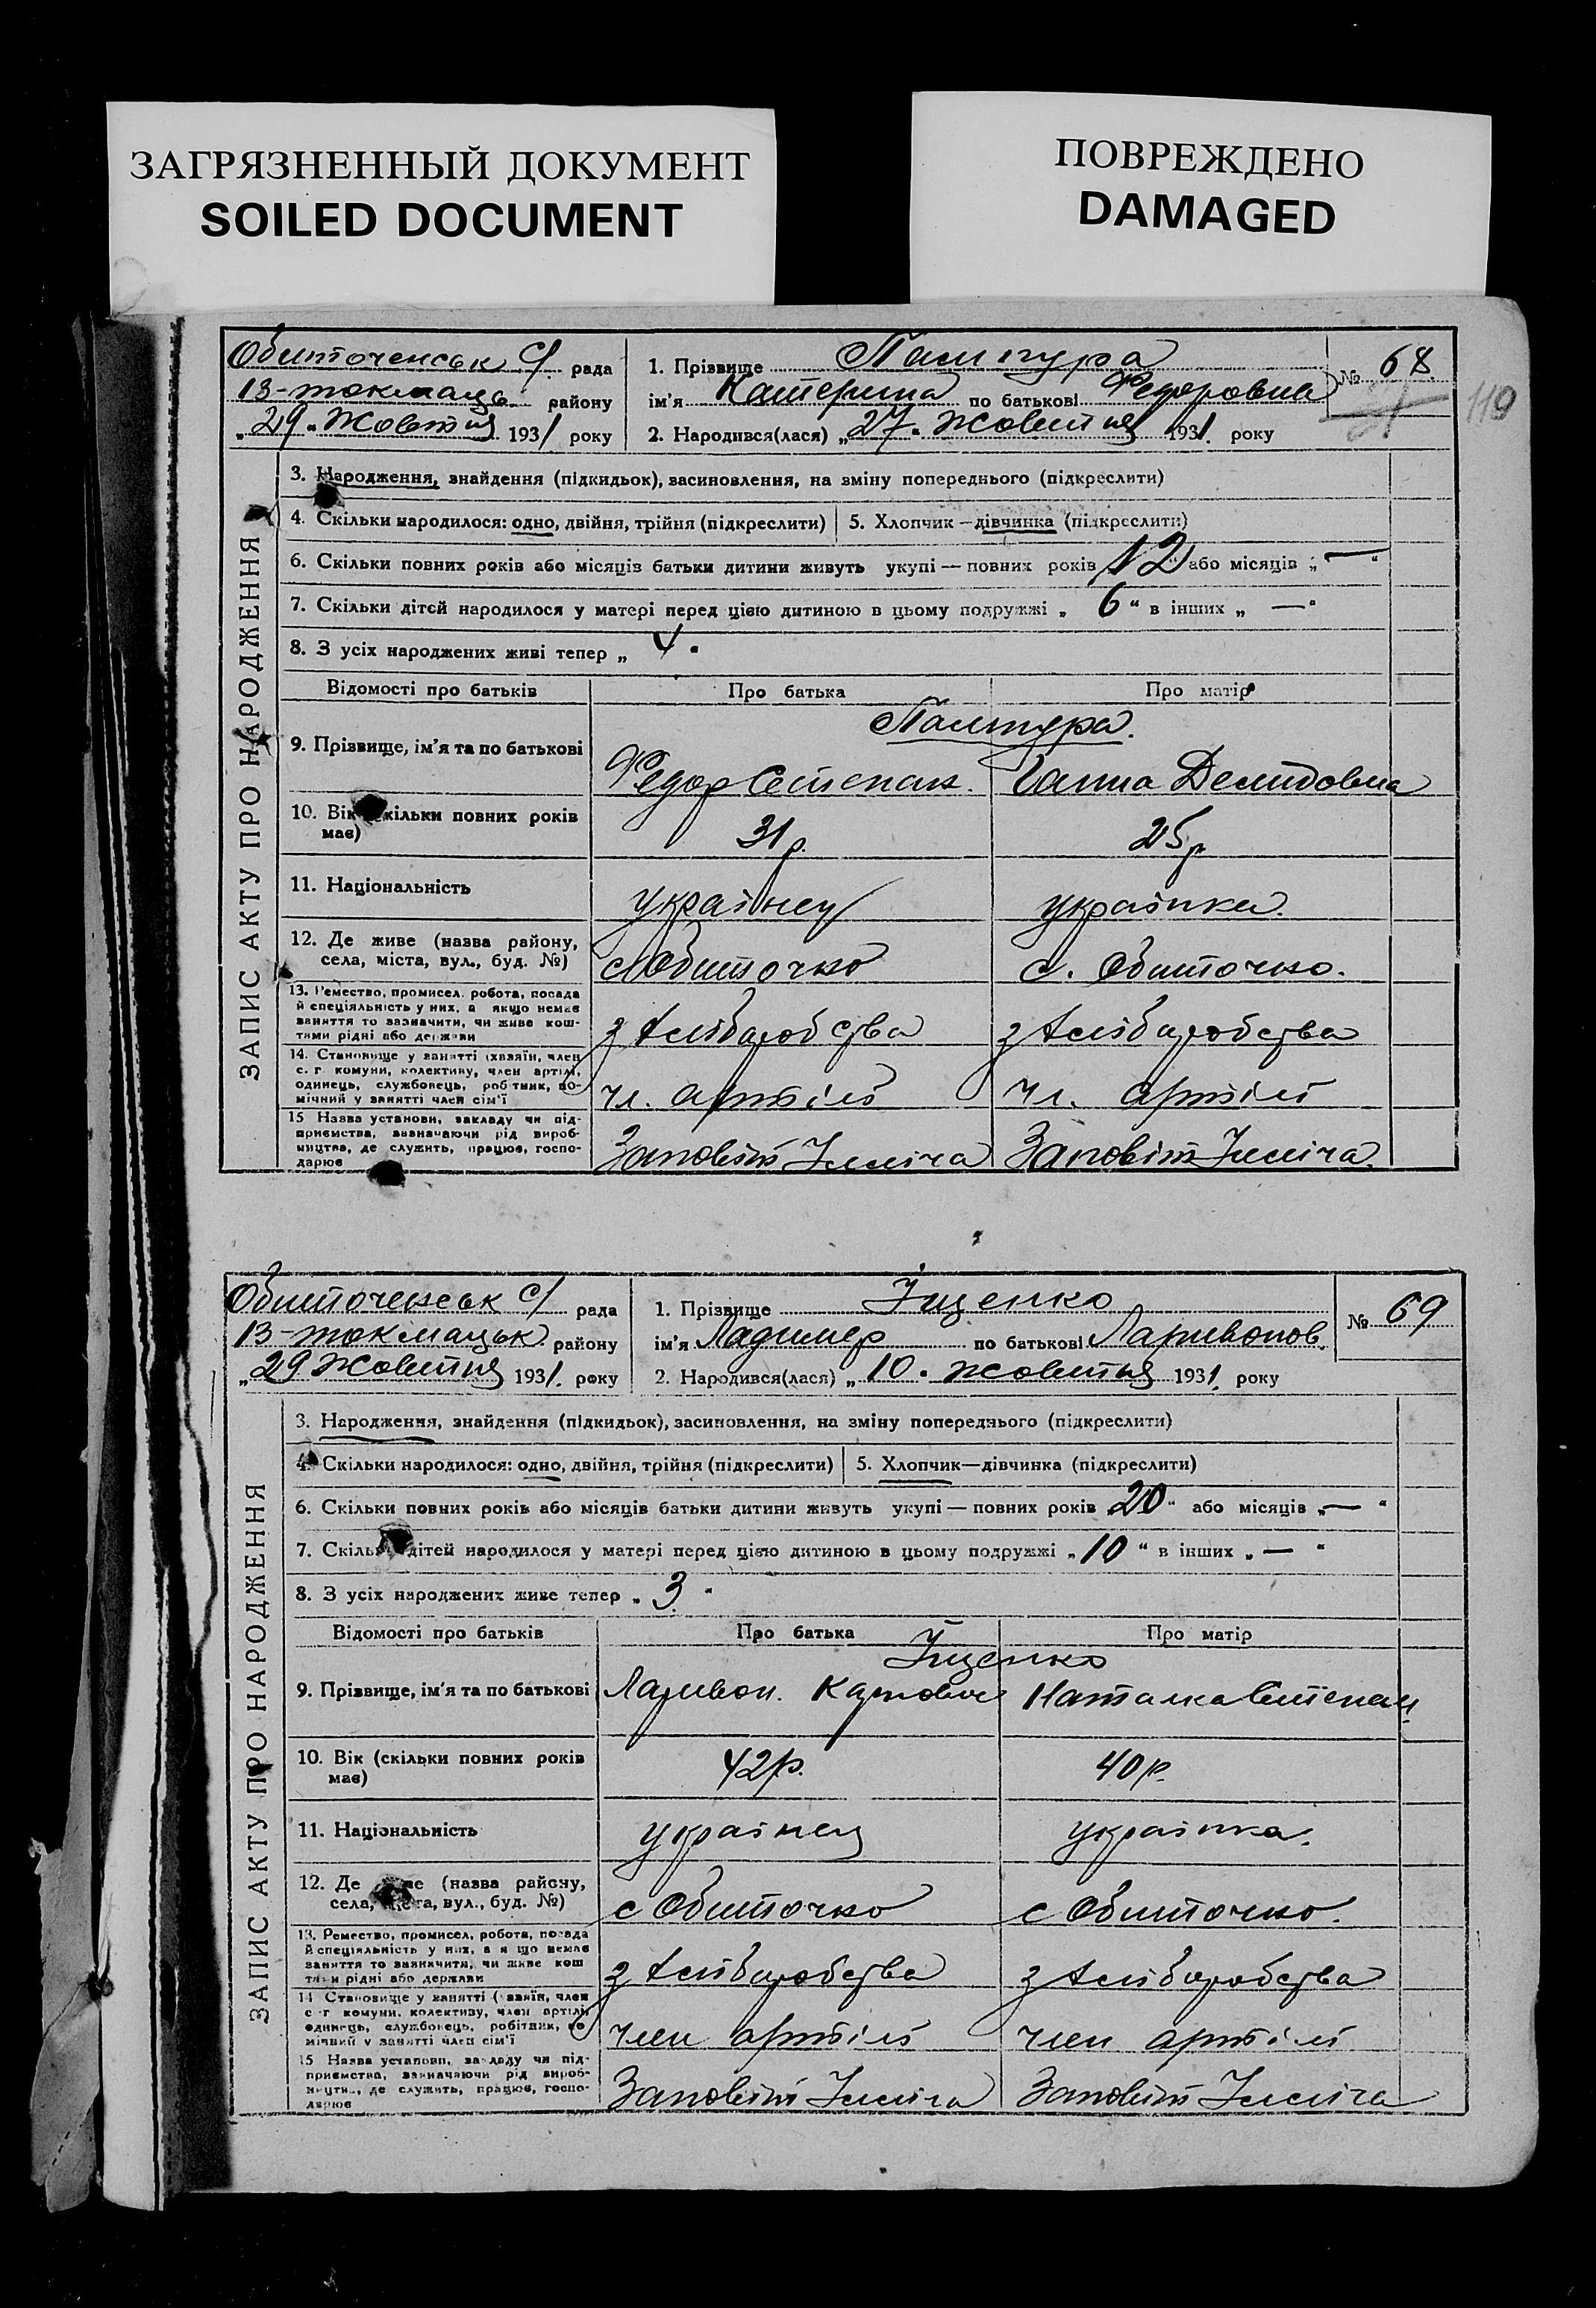 ЗАГРЯЗНЕННЫЙ ДОКУМЕНТ
SOILED DOCUMENT
ПОВРЕЖДЕНО
DAMAGED
119
ЗАПИС АКТУ ПРО НАРОДЖЕННЯ
Обиточенськ с/ рада
В-токмацьк району
„29" Жовтня 1931 року
1. Прізвище
ім'я Катерина по батькові Федоровна
2. Народився(лася) „27" Жовтня 1931. року
№ 68.
3. Народження, знайдення (підкидьок), засиновлення, на зміну попереднього (підкреслити)
4. Скільки народилося: одно, двійня, трійня (підкреслити)
5. Хлопчик—дівчинка (підкреслити)
6. Скільки повних років або місяців батьки дитини живуть укупі — повних років „12" або місяців „—"
7. Скільки дітей народилося у матері перед цією дитиною в цьому подружжі „6" в інших „—"
8. З усіх народжених живі тепер „4"
Відомості про батьків
Про батька
Про матір
9. Прізвище, ім'я та по батькові
Федор Степан.
Ганна Демидовна
10. Вік (скільки повних років
має)
31 р.
25 р
11. Національність
українец
українка.
12. Де живе (назва району,
села, міста, вул., буд. №)
с Обиточко
с. Обиточко.
13. Ремество, промисел, робота, посада
й спеціяльність у них, а якщо немає
заняття то зазначити, чи живе кош-
тами рідні або держави
з хліборобства
з хліборобства
14. Становище у занятті (хазяїн, член
с.-г комуни, колективу, член артілі,
одинець, службовець, робітник, по-
мічний у занятті член сім'ї
чл. артілі
чл. артілі
15 Назва установи, закладу чи під-
приємства, зазначаючи рід вироб-
ництва, де служить, працює, госпо-
дарює
Заповіт Ілліча
Заповіт Ілліча.
ЗАПИС АКТУ ПРО НАРОДЖЕННЯ
Обиточенськ с/ рада
В-токмацьк. району
„29 Жовтня 1931. року
1. Прізвище Іщенко
ім'я Ладимер по батькові Ларивонов.
2. Народився(лася) „10" жовтня 1931. року
№ 69
3. Народження, знайдення (підкидьок), засиновлення, на зміну попереднього (підкреслити)
4. Скільки народилося: одно, двійня, трійня (підкреслити)
5. Хлопчик—дівчинка (підкреслити)
6. Скільки повних років або місяців батьки дитини живуть укупі — повних років „20" або місяців „—"
7. Скільки дітей народилося у матері перед цією дитиною в цьому подружжі „10" в інших „—"
8. З усіх народжених живе тепер „3"
Відомості про батьків
Про батька
Про матір
Іщенко
9. Прізвище, ім'я та по батькові
Ларивон. Карпович
Наталка Степан.
10. Вік (скільки повних років
має)
42 р.
40 р.
11. Національність
українец
українка.
12. Де живе (назва району,
села, міста, вул., буд. №)
с Обиточко
с Обиточко.
13. Ремество, промисел, робота, посада
й спеціяльність у них, а якщо немає
заняття то зазначити, чи живе кош
тами рідні або держави
з хліборобства
з хліборобства
14 Становище у занятті (хазяїн, член
с-г комуни, колективу, член артілі
одинець, службовець, робітник, по
мічний у занятті член сім'ї
член артілі
член артілі
15 Назва установи, закладу чи під-
приємства, зазначаючи рід вироб-
ництва, де служить, працює, госпо-
дарює
Заповіт Ілліча
Заповіт Ілліча